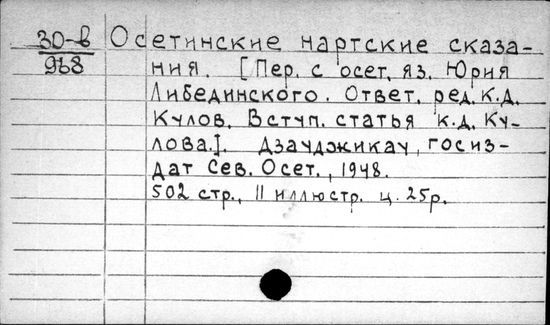 30-в Осетинские нартские сказа-
968 ния. [Пер. с осет. яз. Юрия
Либединского. Ответ. ред. К.Д.
Кулов. Вступ. статья К.Д. Ку-
лова.]. Дзауджикау, госиз-
дат Сев. Осет., 1948.
502 стр., 11 иллюстр. ц. 25р.